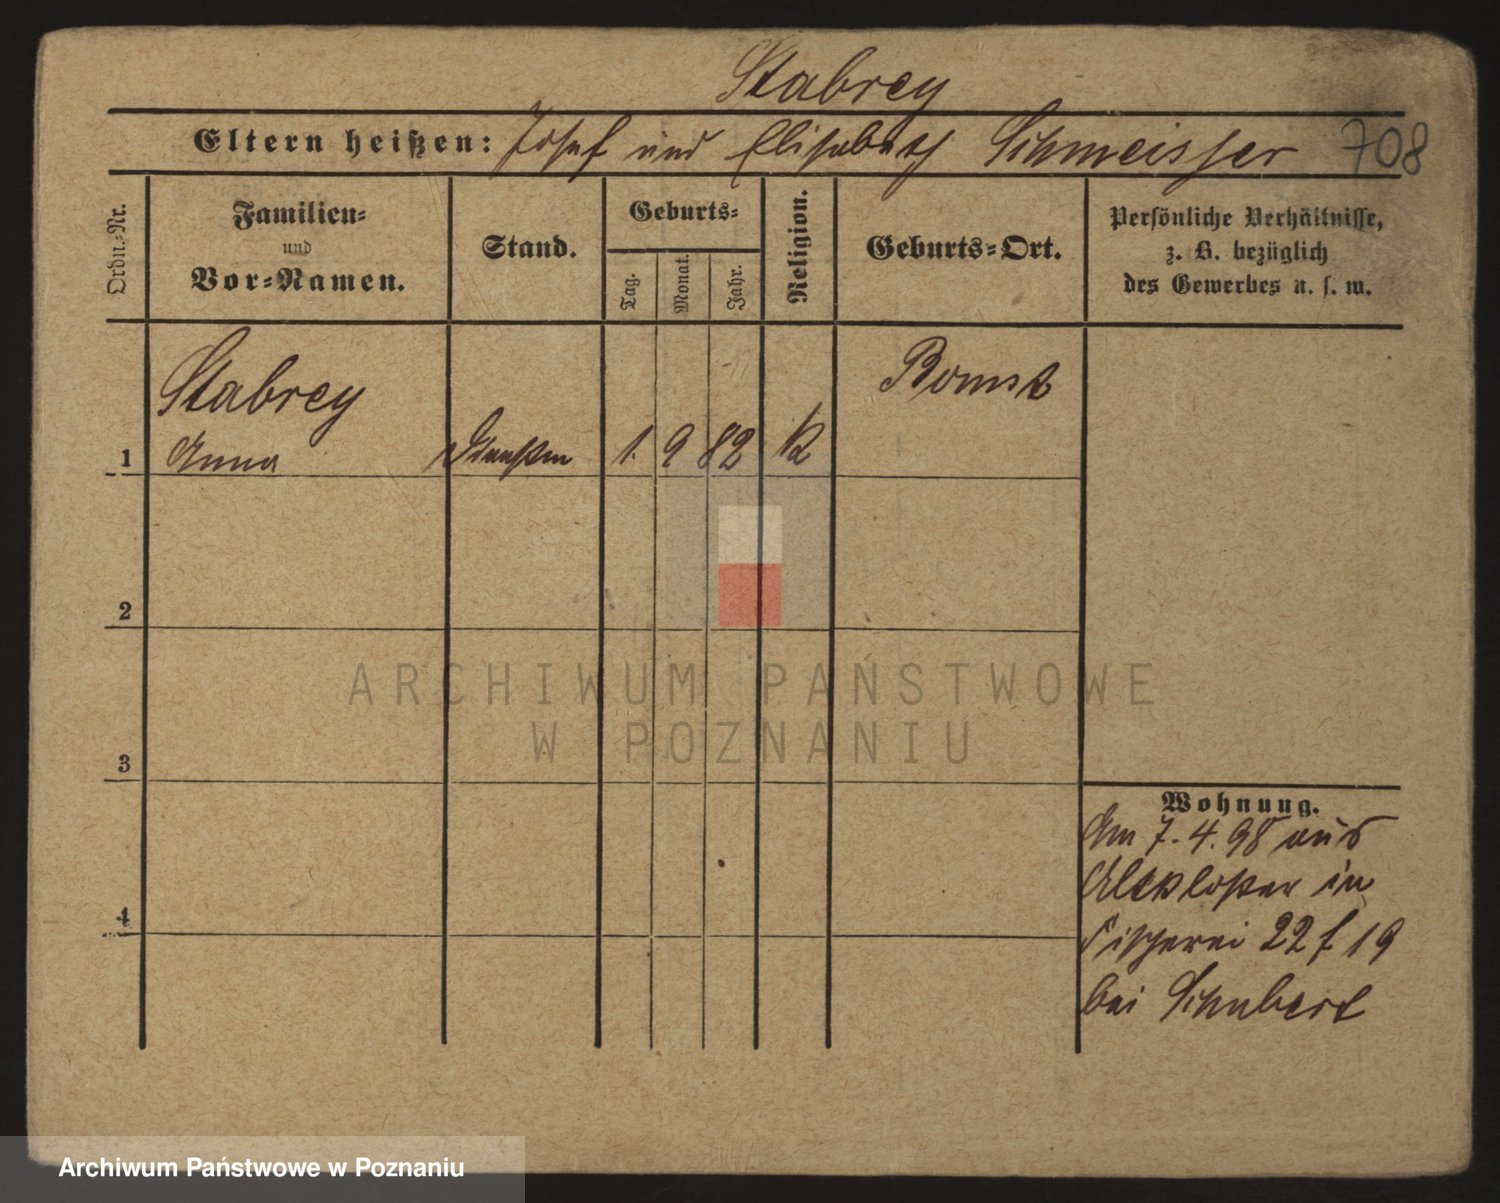 Stabrey
Eltern heißen: Josef und Elisabeth Schmeisser 708
Ordn.-Nr.
Familien-
und
Vor-Namen.
Stand.
Geburts-
Tag.
Monat.
Jahr.
Religion.
Geburts-Ort.
Persönliche Verhältnisse,
z. B. bezüglich
des Gewerbes u. s. w.
Stabrey
Bomst
1 Anna 1. 9 82 K
2
3
4
Wohnung.
Am 7. 4. 98 aus
Altkloster in
Fischerei 22 f 19
bei Schubert
ARCHIWUM PAŃSTWOWE
W POZNANIU
Archiwum Państwowe w Poznaniu